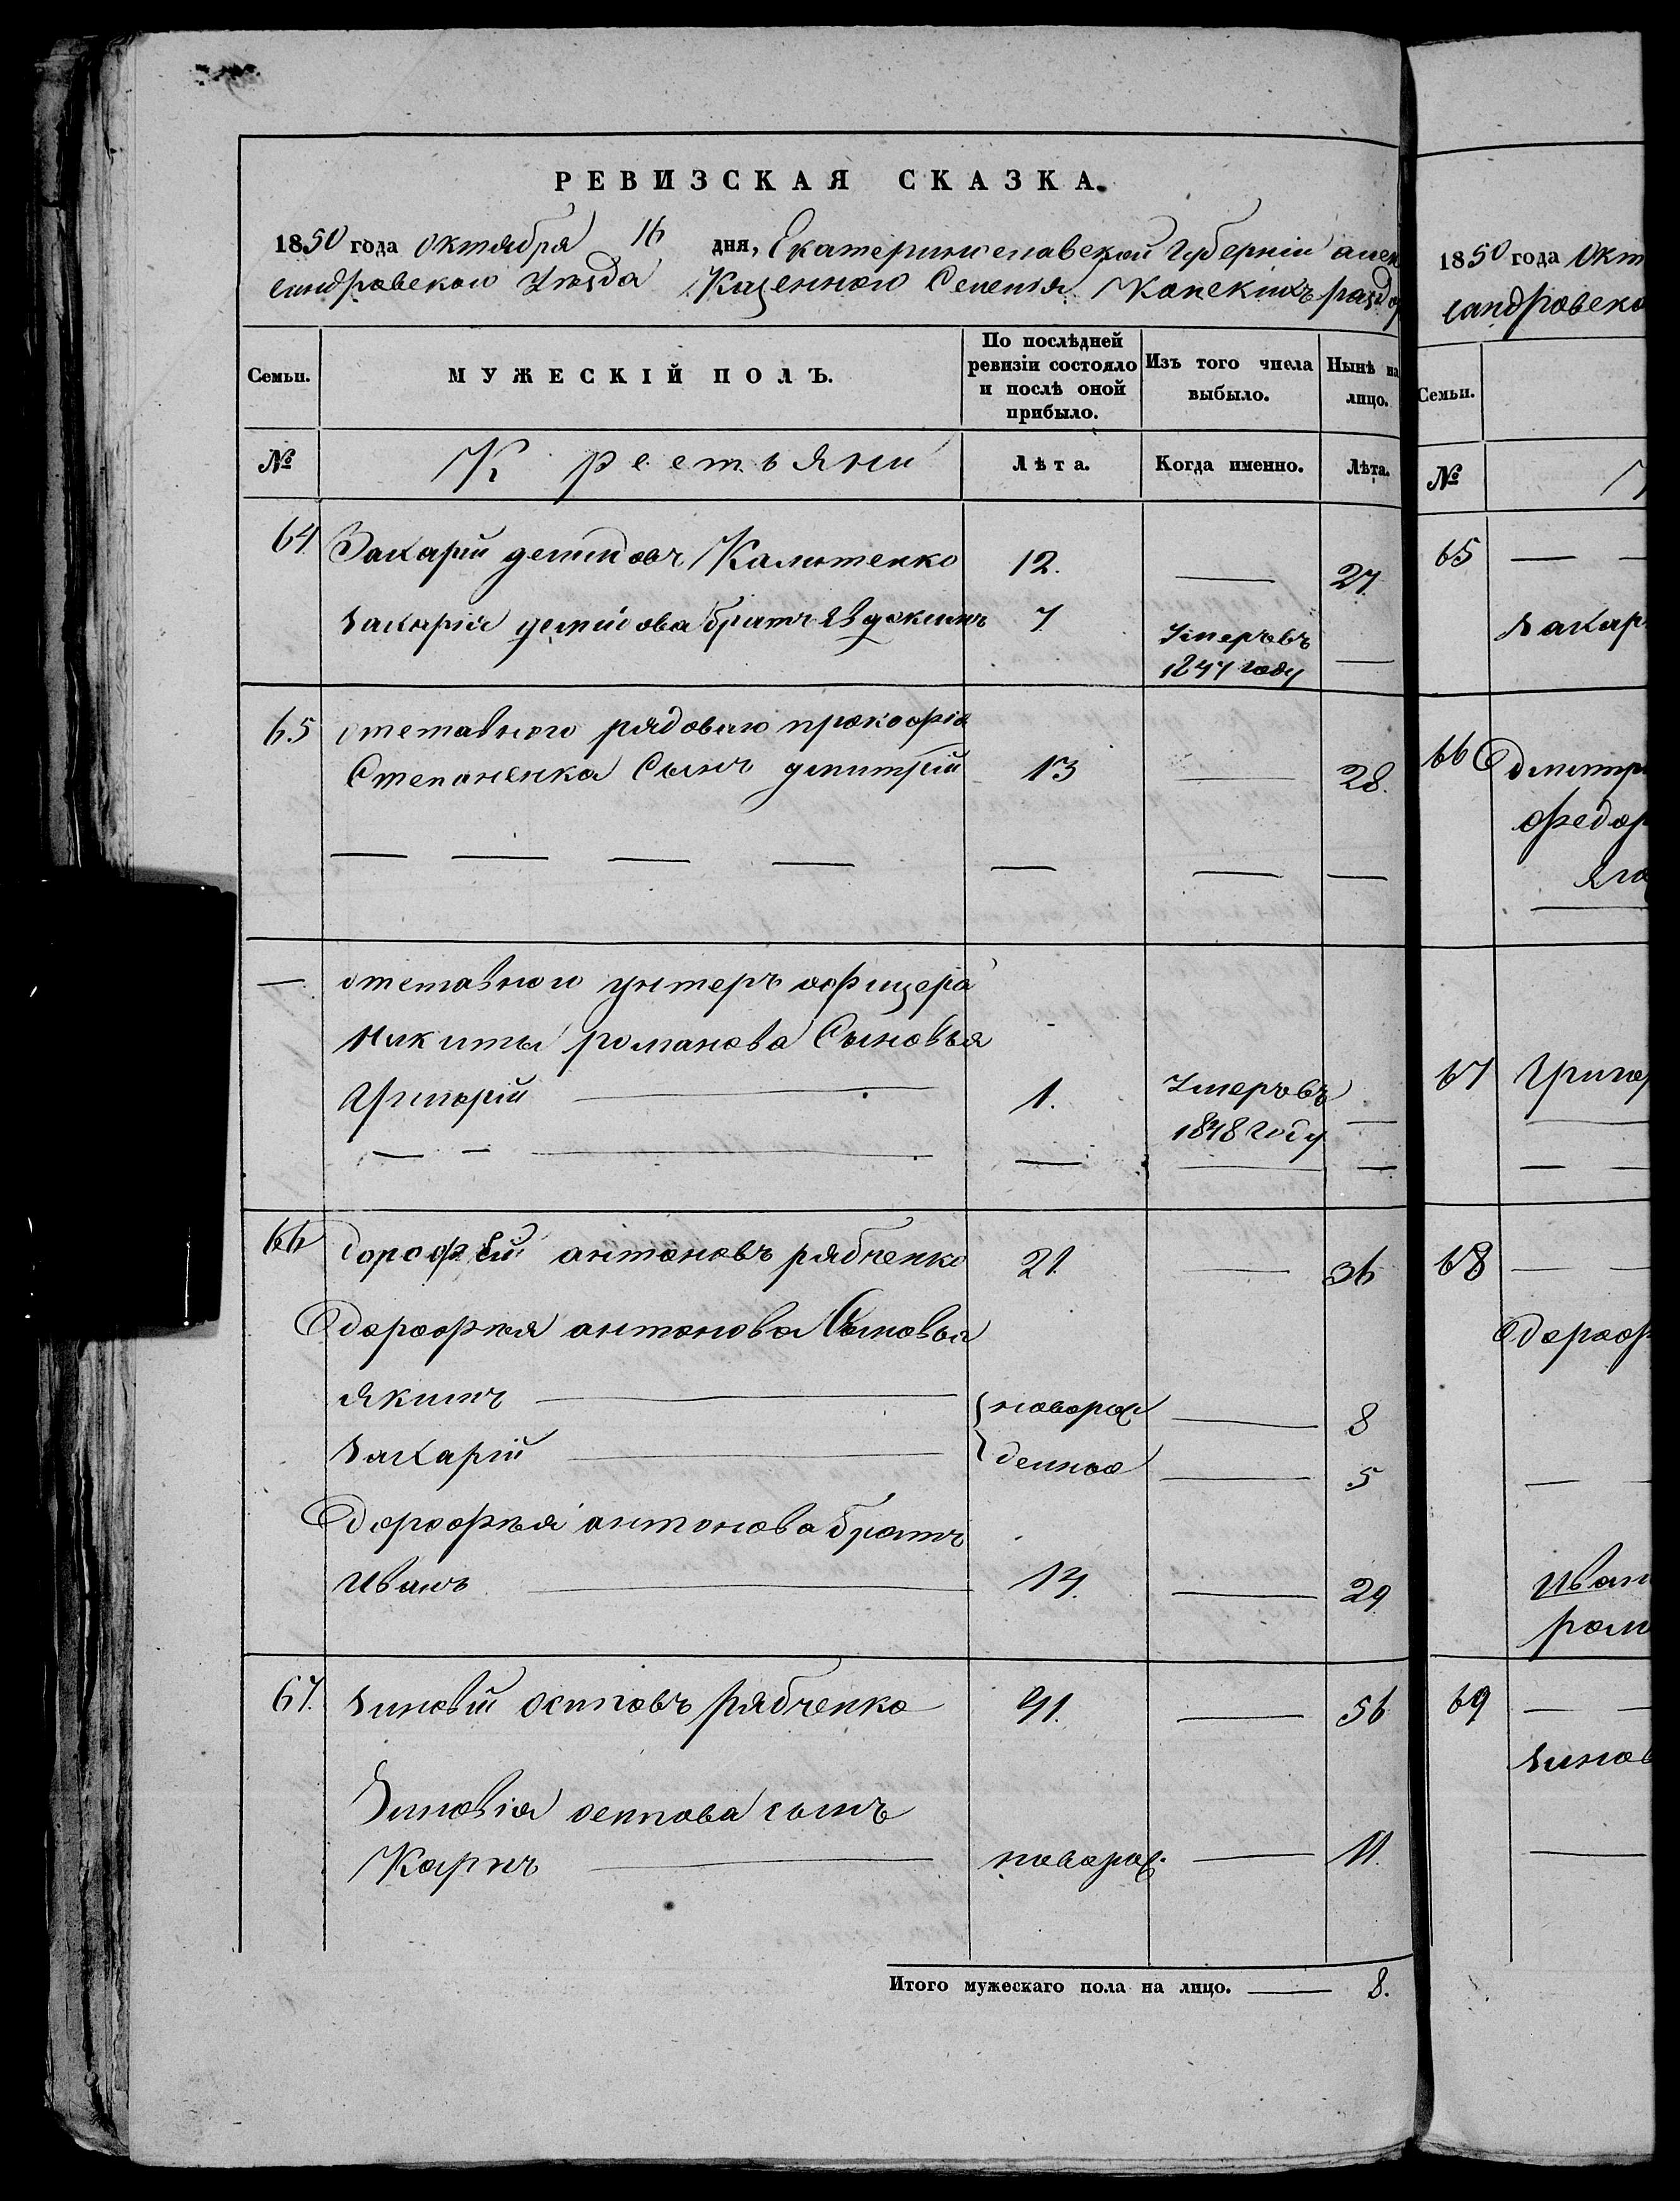 РЕВИЗСКАЯ СКАЗКА.
1850 года октября 16 дня, Екатеринославской губерніи алек
сандровского уезда Казенного Селенія Конскихъ раздор
Семьи. МУЖЕСКІЙ ПОЛЪ. По послѣдней ревизіи состояло и послѣ оной прибыло. Изъ того числа выбыло. Нынѣ на лицо.
№ Крестьяни Лѣта. Когда именно. Лѣта.
64. Захарій демидовъ Калитенко 12. — 27
Захарія демидова братъ Евдокимъ 7 Умеръ въ
1847 году —
65 отставного рядового прокофія
Степаненка Сынъ дмитрій 13 — 28.
— отставного унтеръ офицера
Никиты романова Сыновья
Григорій — 1. Умеръ въ
1848 году —
66 дорофей антоновъ рябченко 21. — 36
дорофея антонова Сыновья
якимъ — новорож — 8
Захарій — денные — 5
дорофея антонова братъ
Иванъ — 14. — 29
67. Зиновій осиповъ рябченко 41. — 56
Зиновія осипова сынъ
Карпъ — поворож. — 11.
Итого мужескаго пола на лицо. — 8.
1850 года Окт
сандровско
Семьи.
№
65 —
Захар
66 дмитр
федор
67 Григор
68 —
дороф
Иван
ром
69 —
Зинов